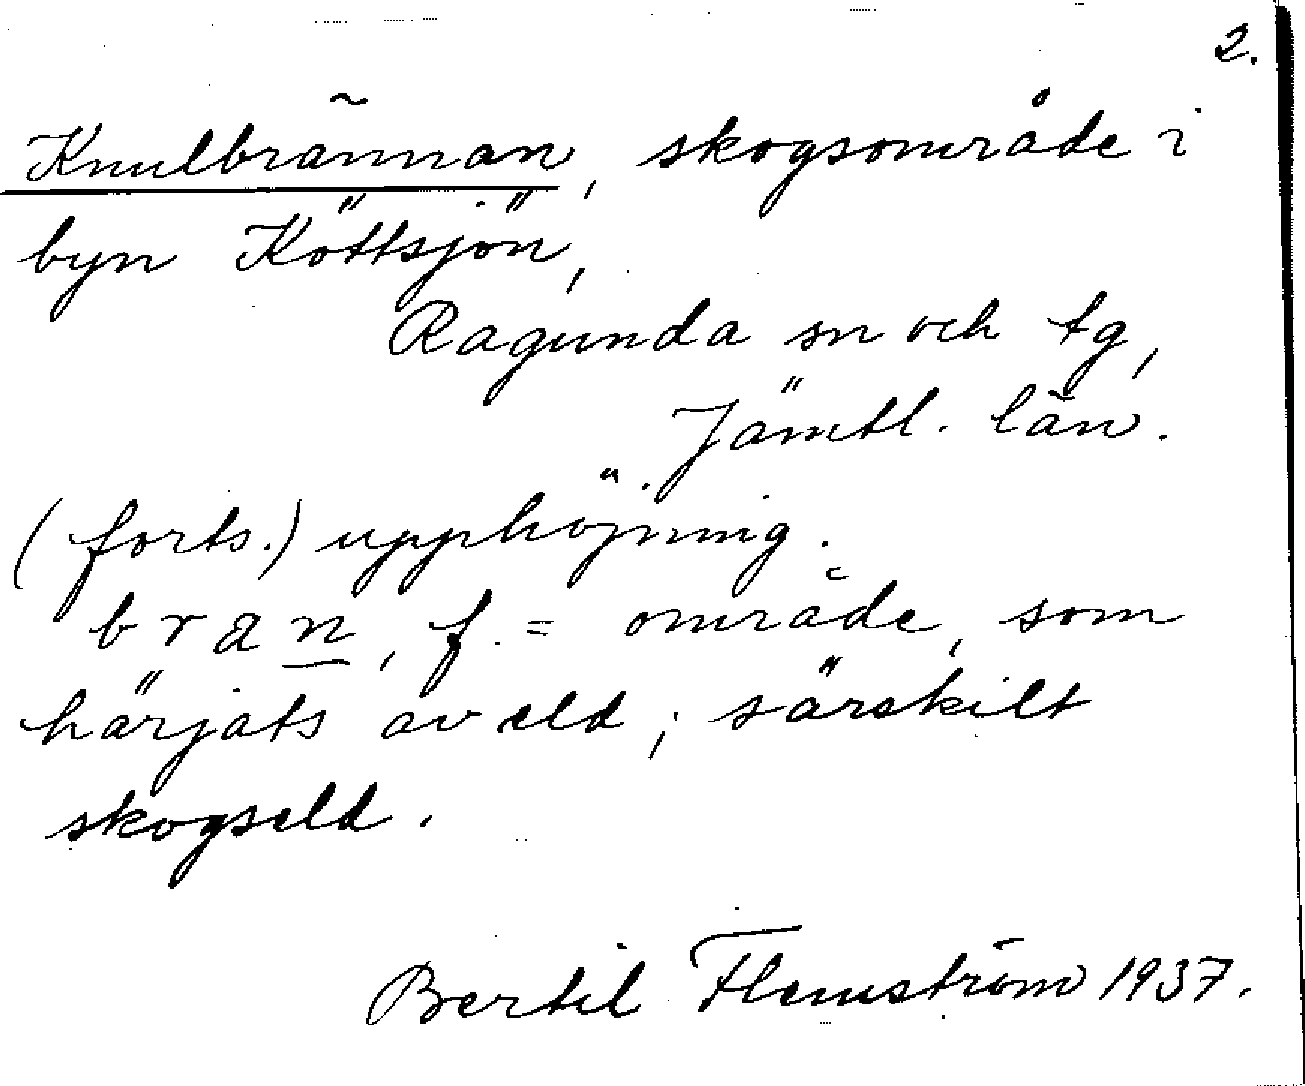 2.
Knulbrännan, skogsområde i
byn Köttsjön,
Ragunda sn och tg,
Jämtl. län.
(forts.) upphöjning.
bran, f. = område, som
härjats av eld; särskilt
skogseld.
Bertil Flemström 1937.